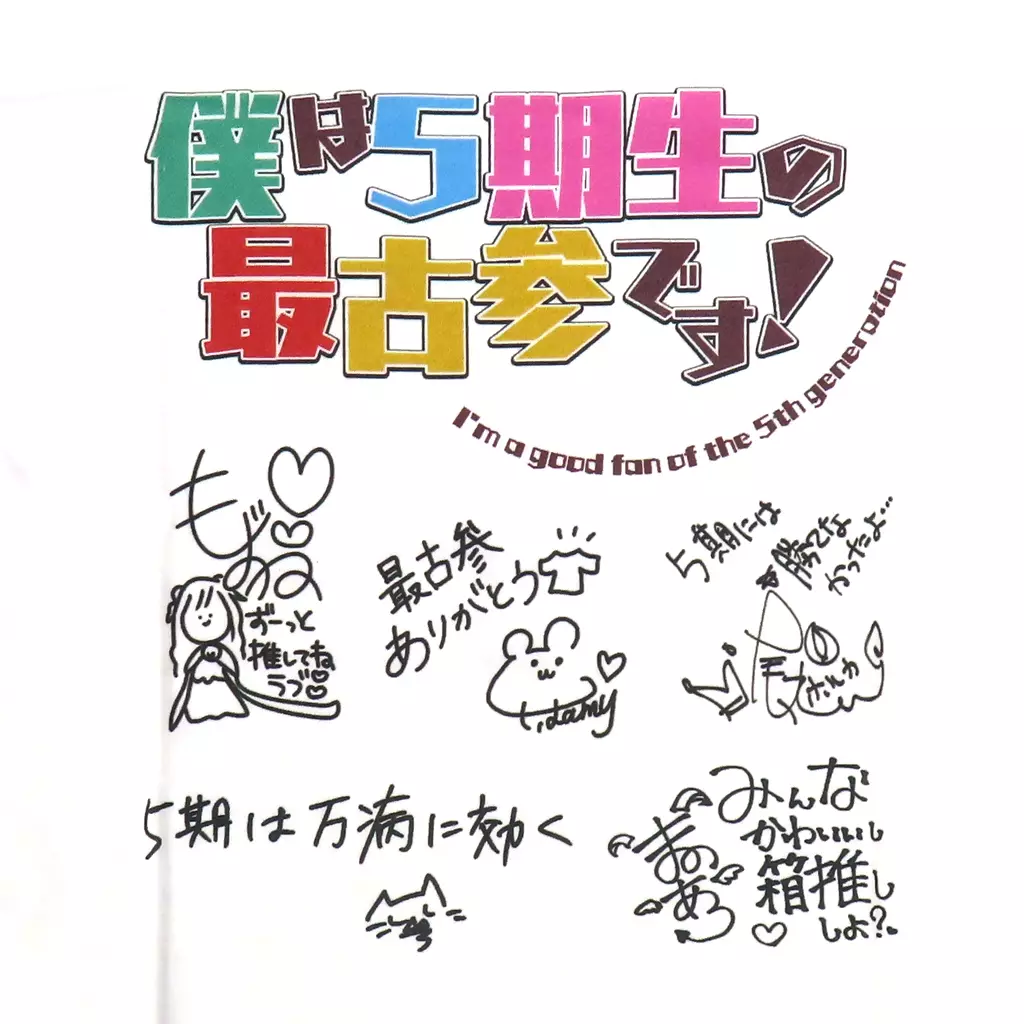 僕は5期生の
最古参です!
I'm a good fan of the 5th generation
もずめ
ずーっと
推してね
ラブ
最古参
ありがとう
t.damy
5期には
勝てな
かったよ…
ポルカ
5期は万病に効く
まのあろ
みんな
かわいいし
箱推し
しよ?